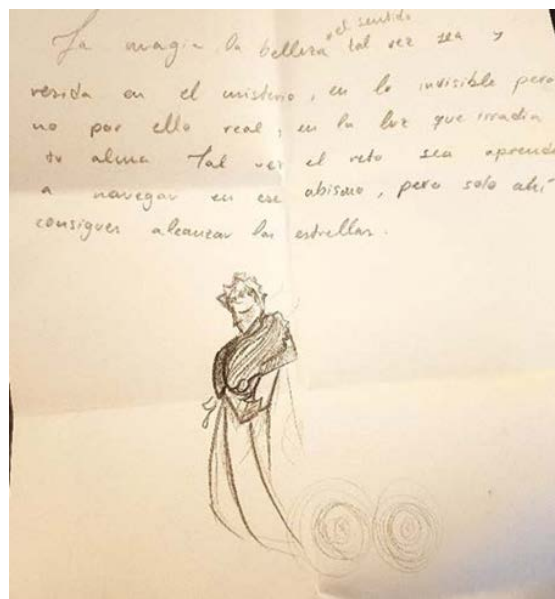 el sentido
La magia la belleza tal vez sea y
resida en el misterio, en lo invisible pero
no por ello real, en la luz que irradia
tu alma Tal vez el reto sea aprende
a navegar en ese abismo, pero solo ahí
consigues alcanzar las estrellas.